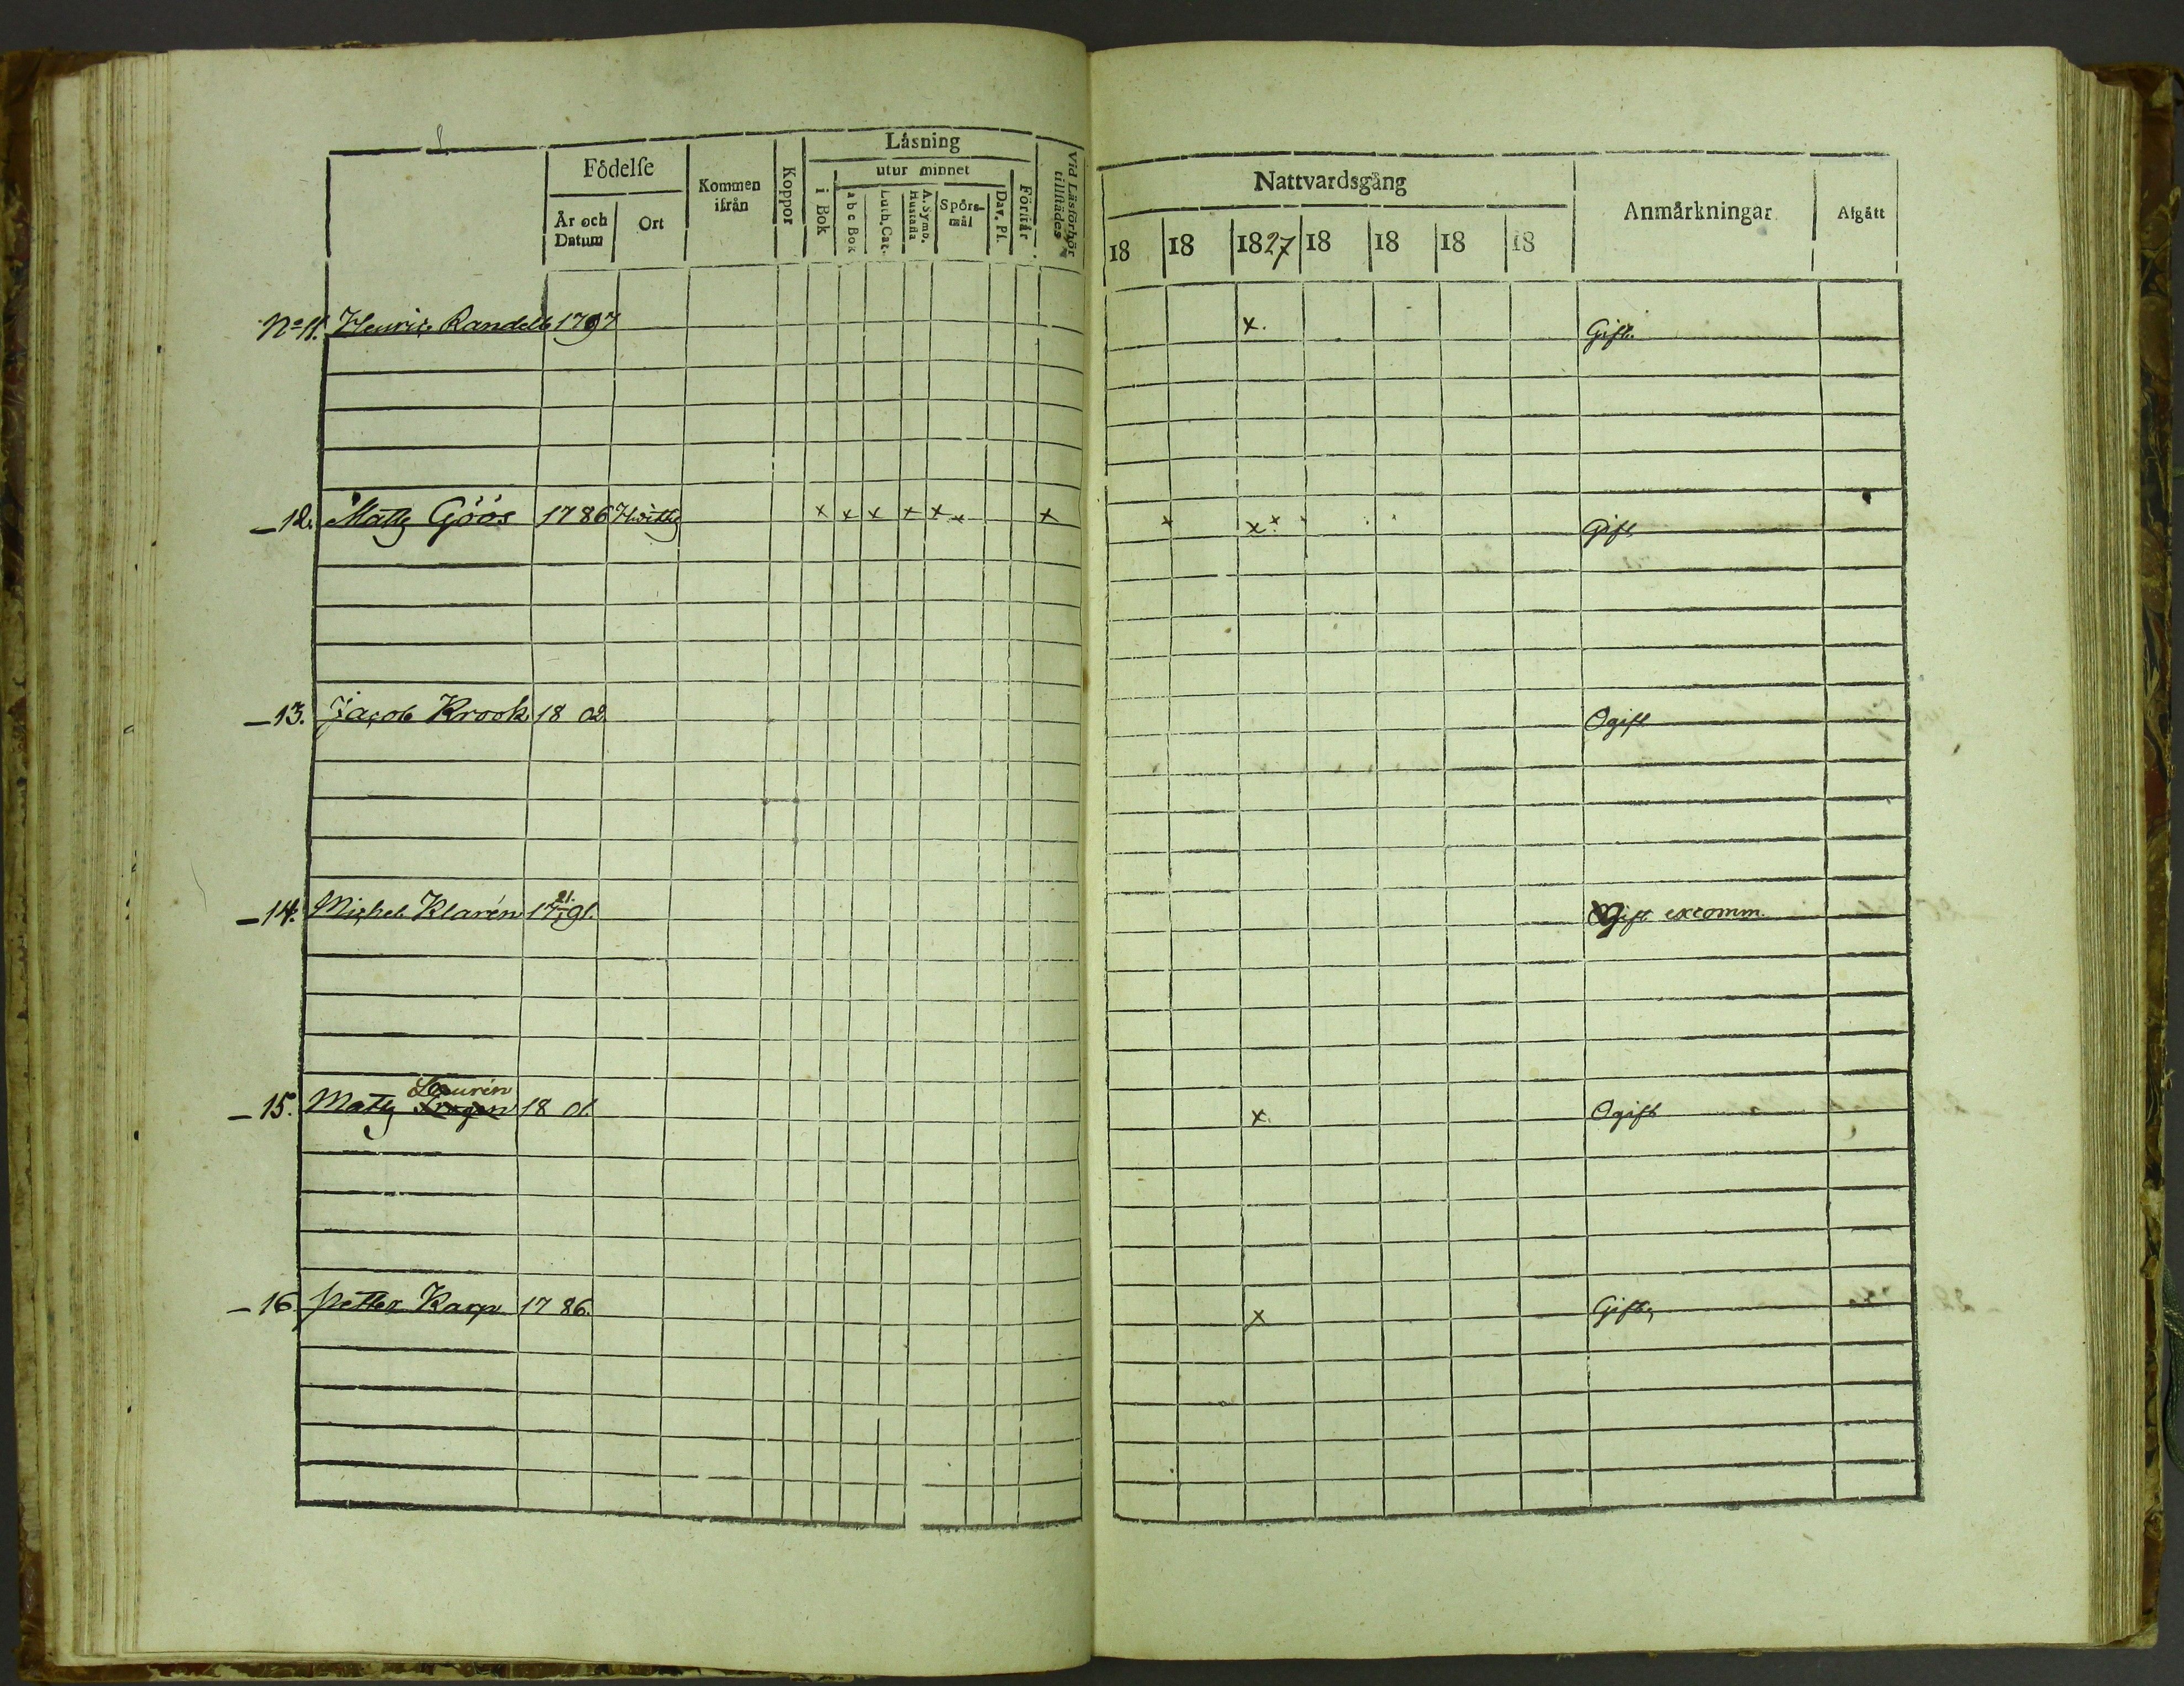 Låsning
Födelse
Kommen ifrån
Koppor
utur minnet
Vid Läsförhör tillstädes
År och Datum
Ort
i Bok
abc Bok
Luth. Cat.
A. Symb. Hustafla
Spörsmål
Dav. Ps.
Förstår
Nattvardsgång
Anmärkningar
Afgått
18 18 1827 18 18 18 18
No 11. Henric Randell 1797 x. Gift.
12. Matts Göös 1786 x x x x x x x x x x Gift
13. Jacob Krook 1802 Ogift
14. Michel Klarén 1791. Gift excomm.
Laurén
15. Matts 1801. x. Ogift
16. Petter Karp 1786. x Gift,